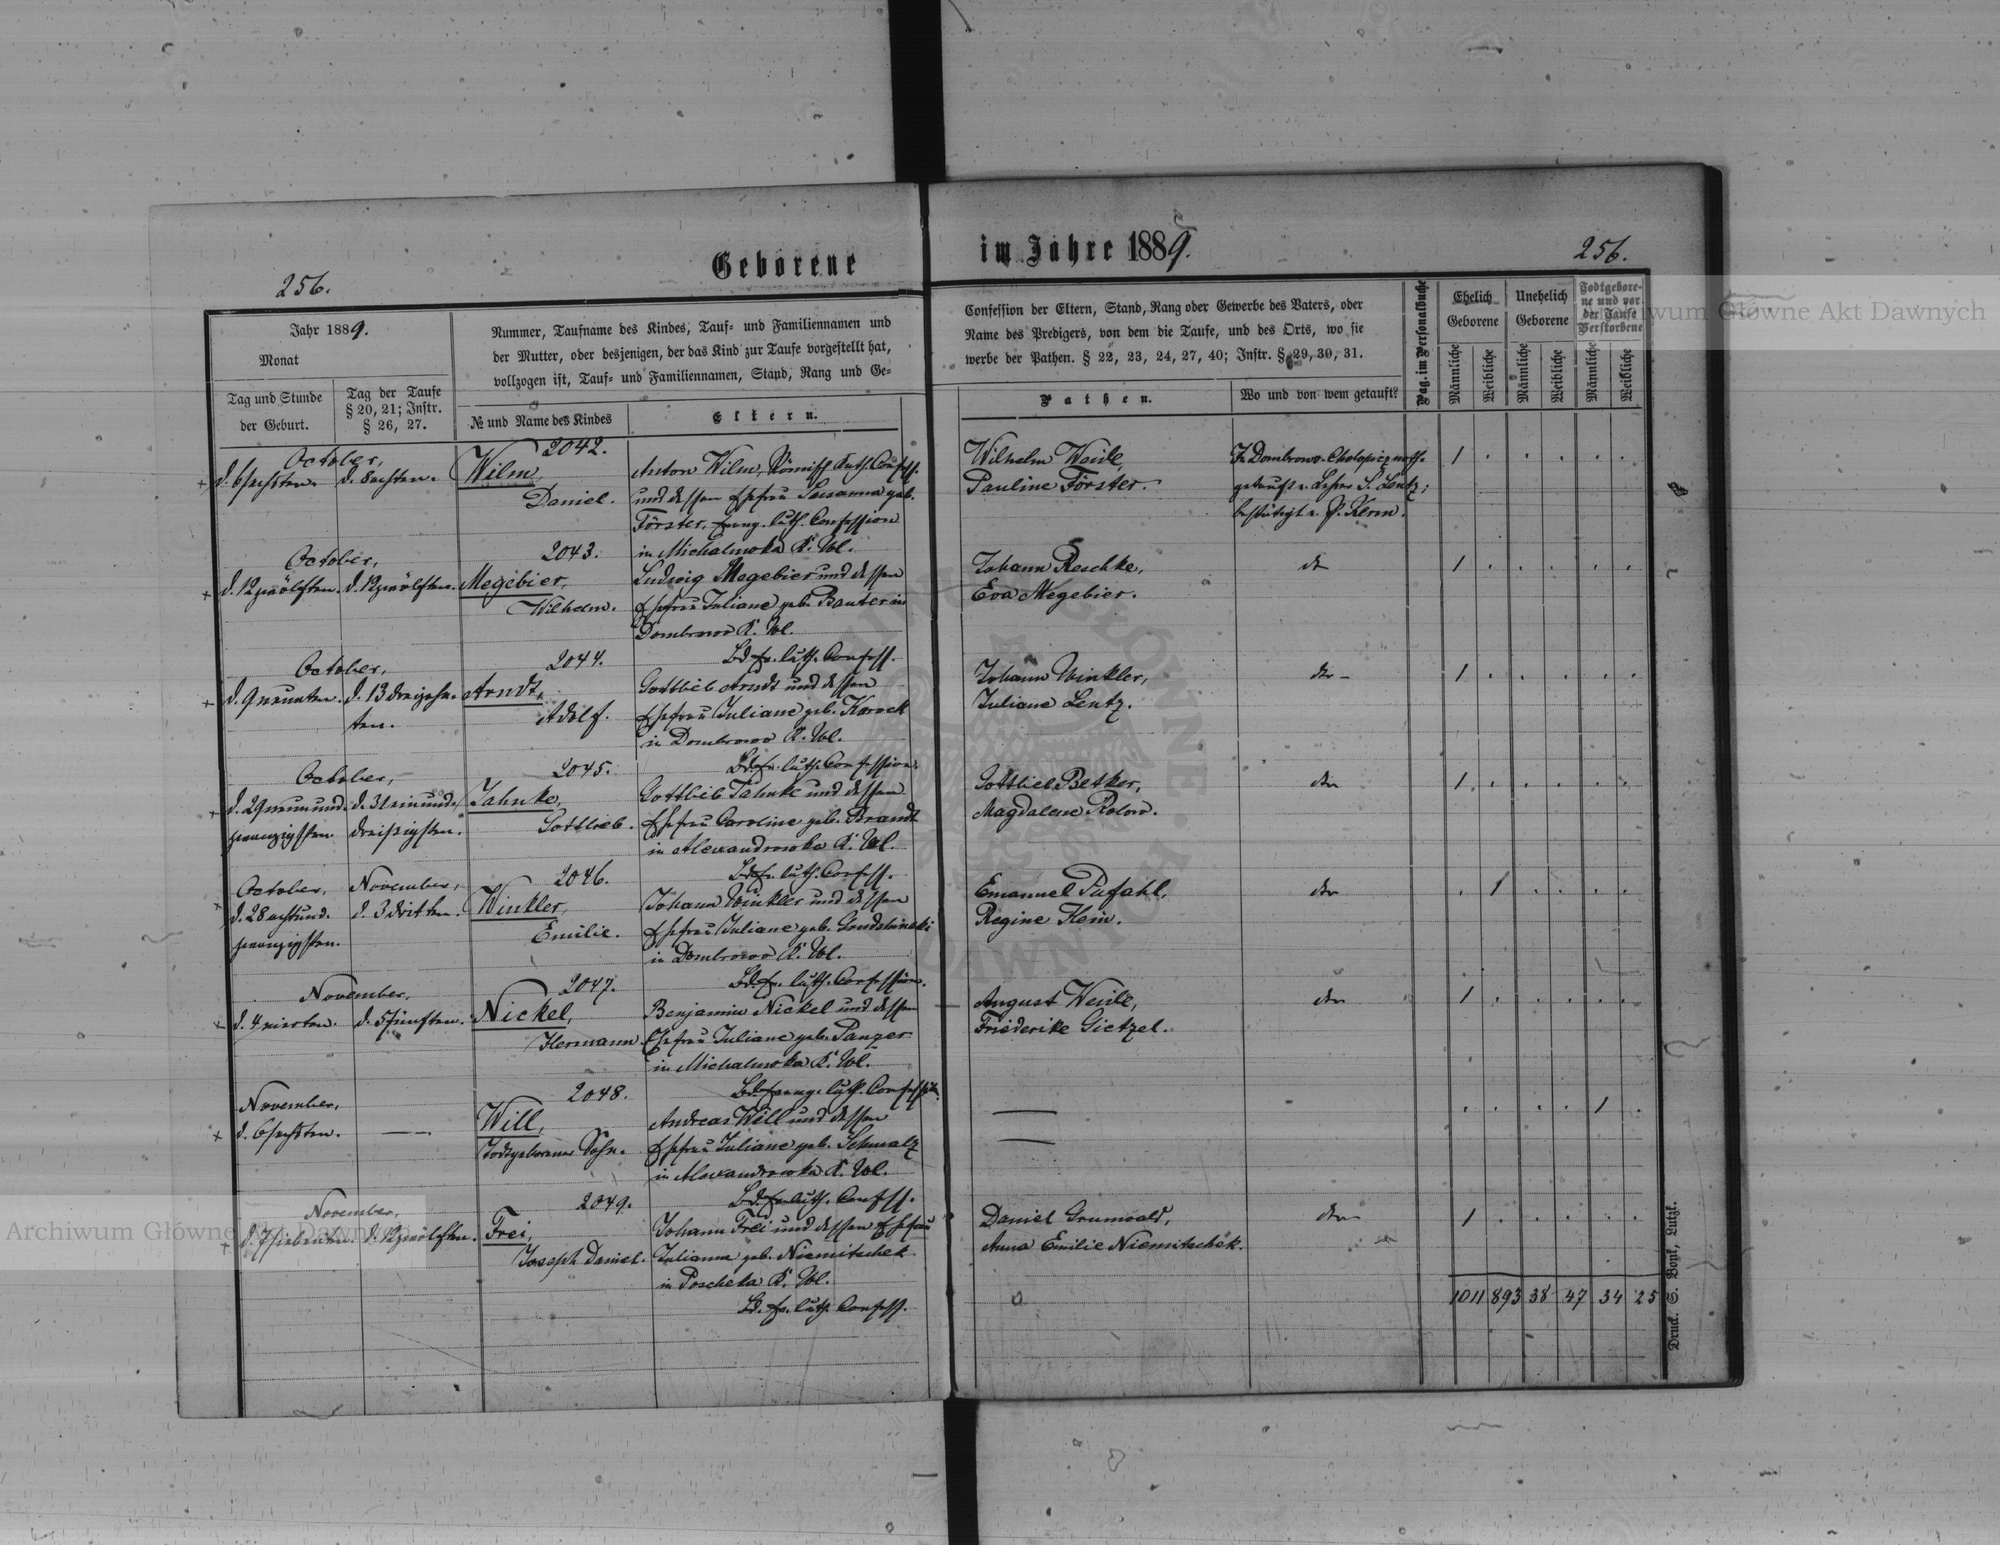 Geborene
im Jahre 1889.
256.
256.
Jahr 1889.
Monat
Tag und Stunde
der Geburt.
Tag der Taufe
§ 20, 21; Instr.
§ 26, 27.
Nummer, Taufname des Kindes, Tauf- und Familiennamen und
der Mutter, oder desjenigen, der das Kind zur Taufe vorgestellt hat,
vollzogen ist, Tauf- und Familiennamen, Stand, Rang und Ge-
№ und Name des Kindes
Eltern.
Confession der Eltern, Stand, Rang oder Gewerbe des Vaters, oder
Name des Predigers, von dem die Taufe, und des Orts, wo sie
werbe der Pathen. § 22, 23, 24, 27, 40; Instr. § 29, 30, 31.
Pathen.
Wo und von wem getauft?
Pag. im Personalbuche
Ehelich
Geborene
Unehelich
Geborene
Todtgebore-
ne und vor
der Taufe
Verstorbene
Männliche
Weibliche
Männliche
Weibliche
Männliche
Weibliche
October,
d. 6 sechsten. d. 8 achten.
2042.
Wilm,
Daniel.
Anton Wilm, Römisch Kath. Confess.
und dessen Ehefrau Susanna geb.
Förster, Evang. luth. Confession
in Michalowka K. Wl.
Wilhelm Weile,
Pauline Förster.
In Dombrowo-
getauft v. Lehrer S. Lentz;
bestätigt v. P. Kerm.
1 . . . . .
October,
d. 12 zwölften. d. 12 zwölften.
2043.
Megebier,
Wilhelm.
Ludwig Megebier und dessen
Ehefrau Juliane geb. Bauter in
Dombrowo K. Wl.
Bd. ev. luth. Confess.
Johann Reschke,
Eva Megebier.
dto
1 . . . . .
October,
d. 9 neunten. d. 13 dreizehn-
ten.
2044.
Arndt,
Adolf.
Gottlieb Arndt und dessen
Ehefrau Juliane geb. Karock
in Dombrowo K. Wl.
Bd. ev. luth. Confession.
Johann Winkler,
Juliane Lentz.
dto
1 . . . . .
October,
d. 29 neunund- d. 31 einund-
zwanzigsten. dreißigsten.
2045.
Jahnke,
Gottlieb.
Gottlieb Jahnke und dessen
Ehefrau Caroline geb. Brandt
in Alexandrowka K. Wl.
Bd. ev. luth. Confess.
Gottlieb Betker,
Magdalene Rolow.
dto
1 . . . . .
October, November,
d. 28 achtund- d. 3 dritten.
zwanzigsten.
2046.
Winkler,
Emilie.
Johann Winkler und dessen
Ehefrau Juliane geb.
in Dombrowo K. Wl.
Bd. ev. luth. Confession.
Emanuel Pufahl,
Regine Hein.
dto
. 1 . . . .
November,
d. 4 vierten. d. 5 fünften.
2047.
Nickel,
Hermann.
Benjamin Nickel und dessen
Ehefrau Juliane geb. Panzer
in Michalowka K. Wl.
Bd. evang. luth. Confession.
August Weile,
Friederike Gietzel.
dto
1 . . . . .
November,
d. 6 sechsten. —
2048.
Will,
Todtgeborener Sohn.
Andreas Will und dessen
Ehefrau Juliane geb. Schmalz
in Alexandrowka K. Wl.
Bd. ev. luth. Confess.
. . . . 1 .
November,
d. 7 siebenten. d. 12 zwölften.
2049.
Frei,
Joseph Daniel.
Johann Frei und dessen Ehefrau
Julianna geb. Niemitschek
in Poscheka K. Wl.
Bd. ev. luth. Confess.
Daniel Grunwald,
Anna Emilie Niemitschek.
dto
1 . . . . .
1011 893 38 47 34 25
Druck. E. Bonk, Lutzk.
Archiwum Główne Akt Dawnych
Archiwum Główne Akt Dawnych